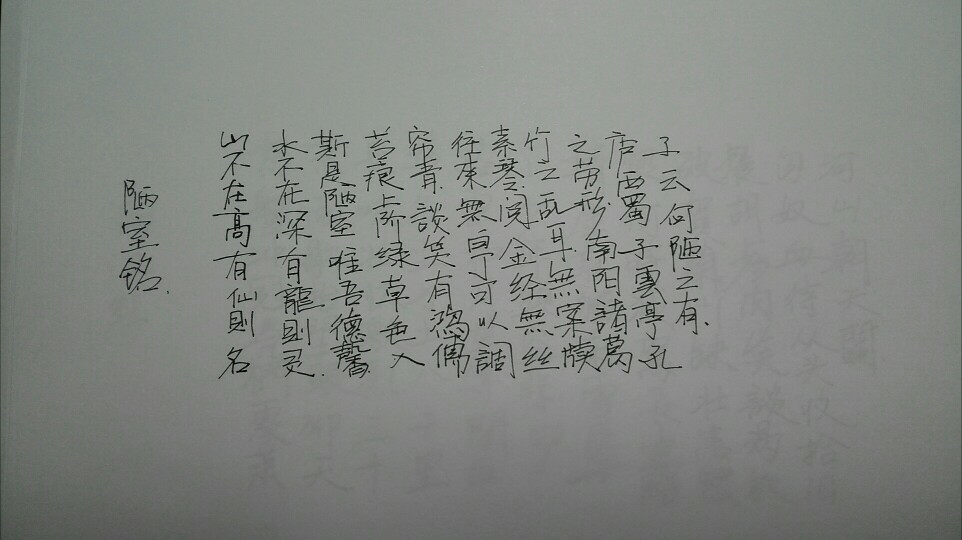 陋室铭.
山不在高有仙則名
水不在深有龍則灵.
斯是陋室唯吾德馨.
苔痕上阶绿草色入
帘青談笑有鴻儒
往來無白丁可以調
素琴阅金经無丝
竹之乱耳無案牘
之劳形南阳諸葛
庐西蜀子雲亭孔
子云何陋之有.